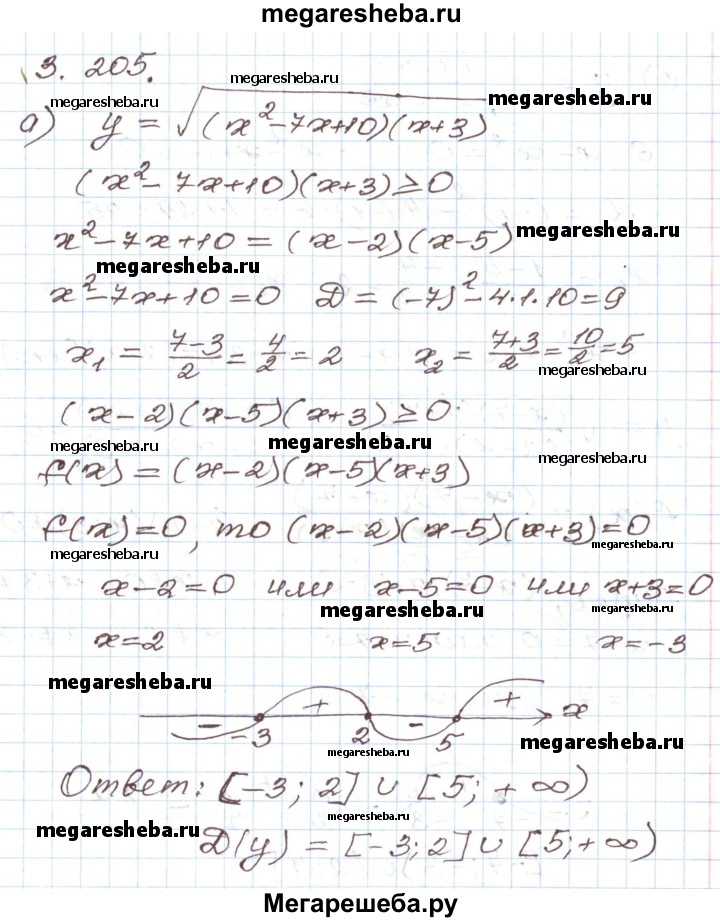 megaresheba.ru
3. 205.
megaresheba.ru
megaresheba.ru
megaresheba.ru
а) y = √(x²-7x+10)(x+3)
(x²-7x+10)(x+3)≥0
x²-7x+10=(x-2)(x-5)
megaresheba.ru
megaresheba.ru
x²-7x+10=0 D=(-7)²-4·1·10=9
x₁ = (7-3)/2 = 4/2 = 2 x₂ = (7+3)/2 = 10/2 = 5
megaresheba.ru
(x-2)(x-5)(x+3)≥0
megaresheba.ru
megaresheba.ru
megaresheba.ru
f(x)=(x-2)(x-5)(x+3)
f(x)=0, то (x-2)(x-5)(x+3)=0
megaresheba.ru
megaresheba.ru
x-2=0 или x-5=0 или x+3=0
megaresheba.ru
megaresheba.ru
x=2 x=5 x=-3
megaresheba.ru
- + - + x
-3 2 5
megaresheba.ru
megaresheba.ru
Ответ: [-3; 2] ∪ [5; +∞)
megaresheba.ru
megaresheba.ru
D(y) = [-3; 2] ∪ [5; +∞)
Мегарешеба.ру